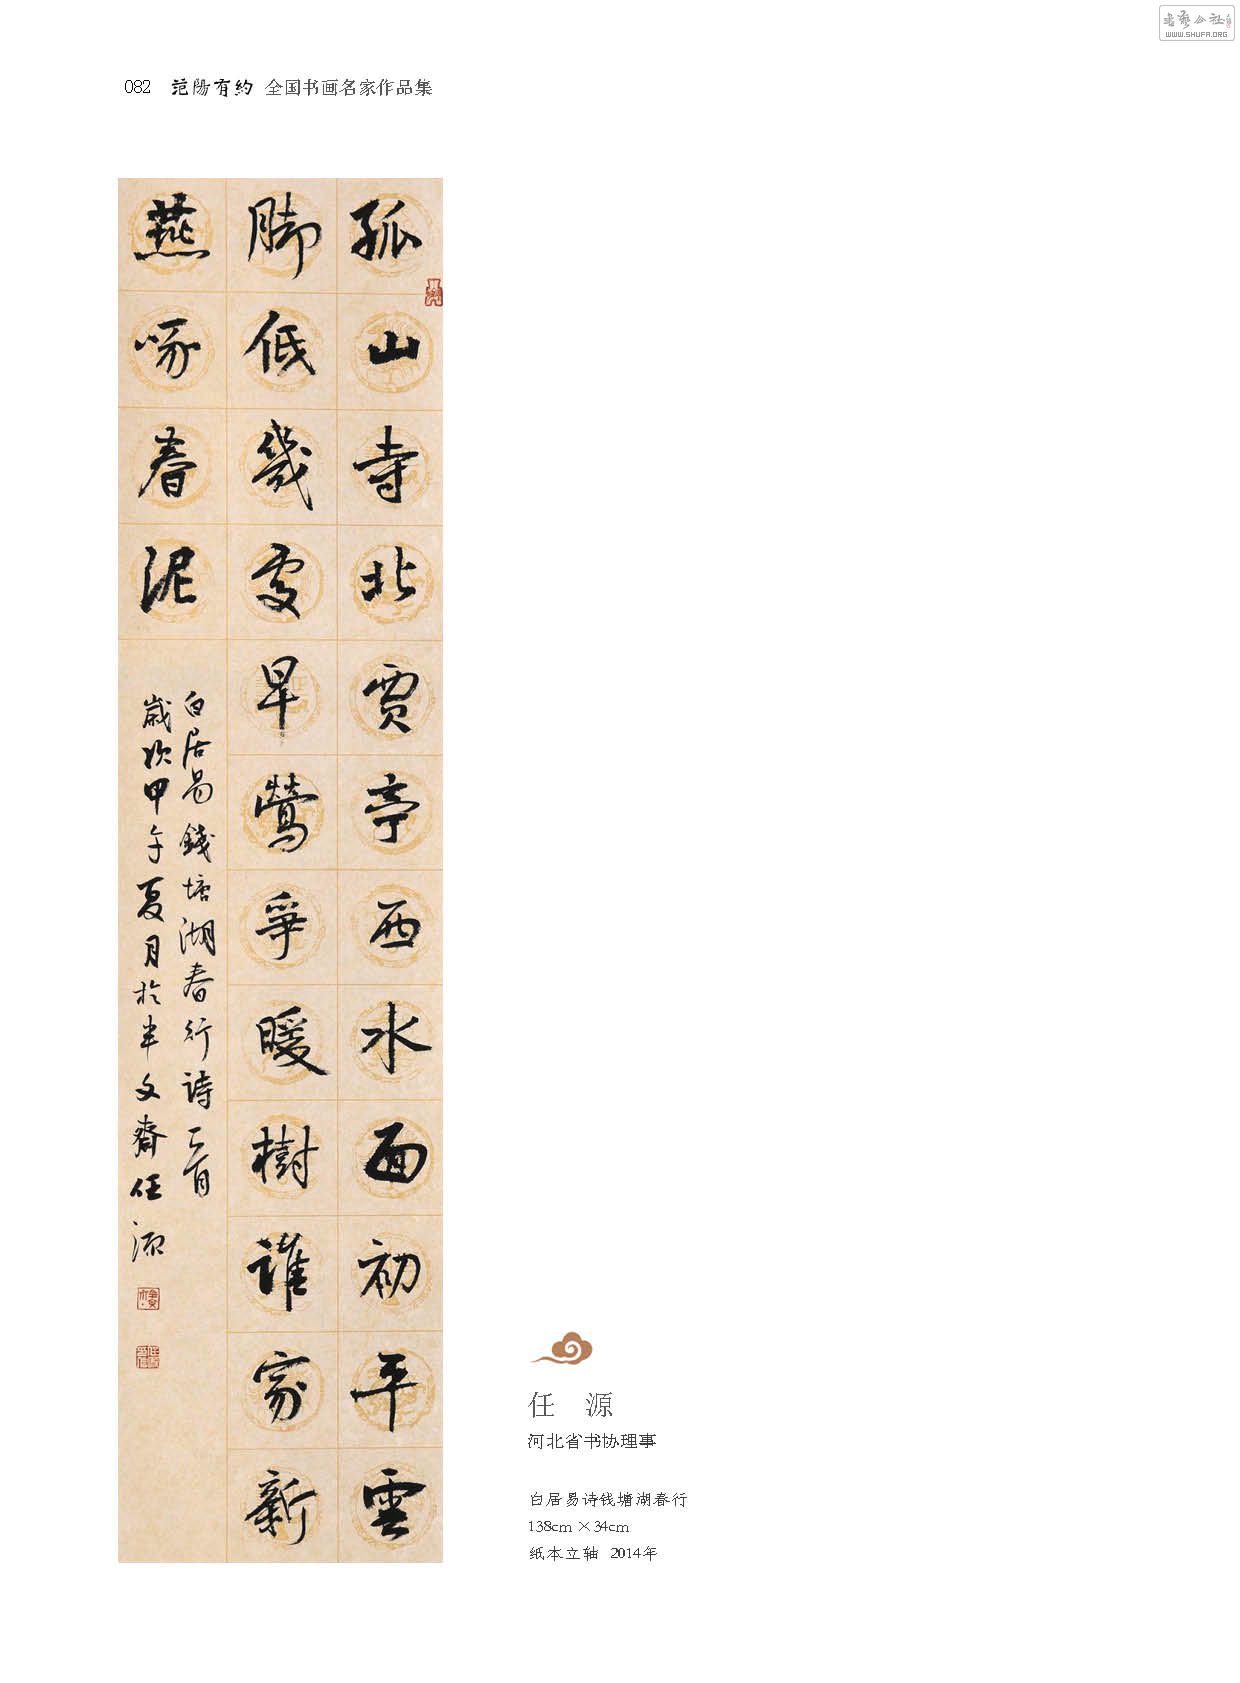 書藝公社
WWW.SHUFA.ORG
082 范陽有約 全国书画名家作品集
孤山寺北賈亭西水面初平雲
脚低幾處早鶯爭暖樹誰家新
燕啄春泥
白居易錢塘湖春行詩一首
歲次甲午夏月於半文齋任源
任 源
河北省书协理事
白居易诗钱塘湖春行
138cm×34cm
纸本立轴 2014年